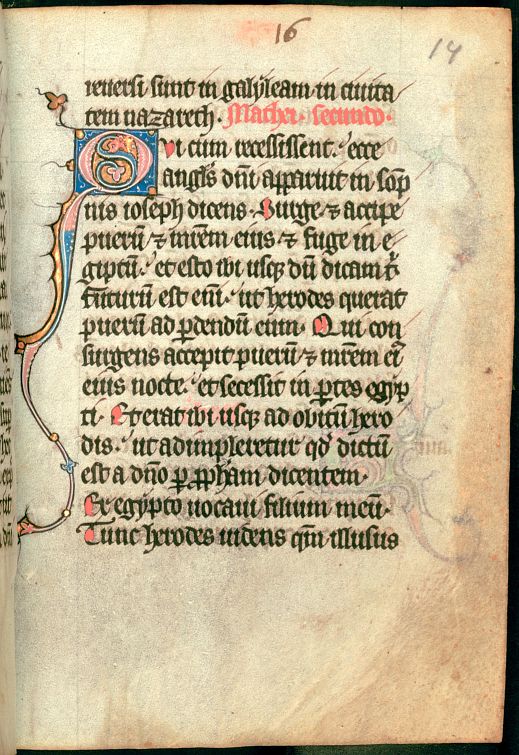 16
14
reuersi sunt in galyleam in ciuita
tem nazareth. Mathei. secundo.
Qui cum recessissent. ecce
angl's dn̄i apparuit in sōp
nis ioseph dicens. Surge ⁊ accipe
puerū ⁊ mr̄em eius ⁊ fuge in e
giptū. et esto ibi usq; dū dicam t̄
futurū est eni̅. ut herodes querat
puerū ad ꝑdendū eum. Qui con
surgens accepit puerū ⁊ mr̄em
eius nocte. et secessit in ꝑtes egyp
ti. Et erat ibi usq; ad obitū hero
dis. ut adimpleretur qd̄ dictū
est a dn̄o ꝑ ꝓpham dicentem.
Ex egypto uocaui filium meū.
Tunc herodes uidens qm̄ illusus